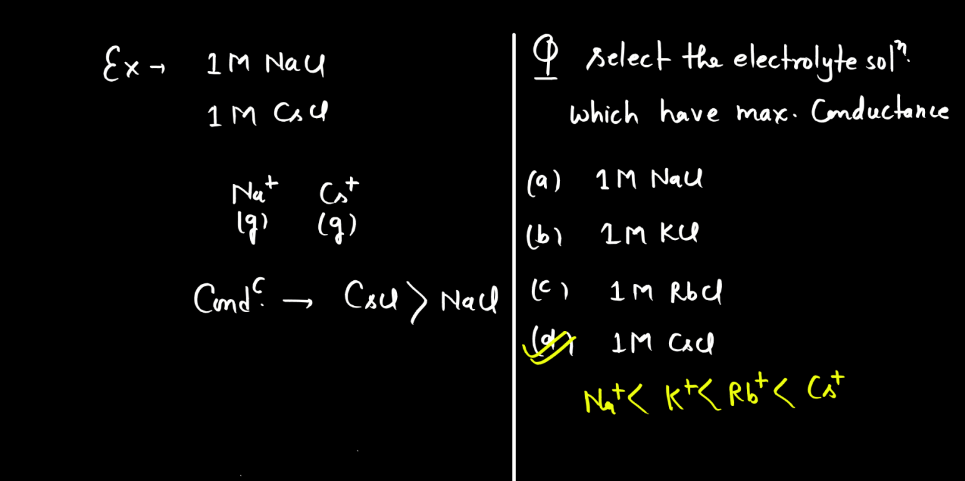 Ex → 1M NaCl
1M CsCl
Na⁺ Cs⁺
(g) (g)
Condᶜ. → CsCl > NaCl
Q select the electrolyte solⁿ.
which have max. Conductance
(a) 1M NaCl
(b) 1M KCl
(c) 1M RbCl
(d) 1M CsCl
Na⁺ < K⁺ < Rb⁺ < Cs⁺